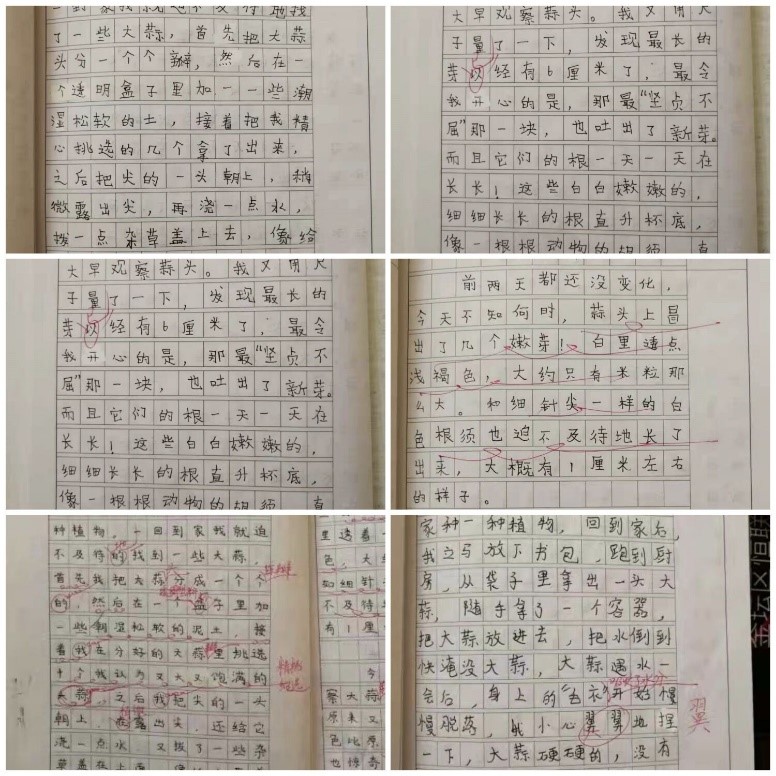 一到家我就迫不及待地找
了一些大蒜，首先把大蒜
头分一个个瓣，然后在一
个透明盒子里加一一些潮
湿松软的土，接着把我精
心挑选的几个拿了出来，
之后把尖的一头朝上，稍
微露出尖，再浇一点水，
拨一点杂草盖上去，像给
大早观察蒜头。我又用尺
子量了一下，发现最长的
芽以经有6厘米了，最令
我开心的是，那最"坚贞不
屈"那一块，也吐出了新芽。
而且它们的根一天一天在
长长！这些白白嫩嫩的，
细细长长的根直升杯底，
像一根根动物的胡须，直
大早观察蒜头。我又用尺
子量了一下，发现最长的
芽以经有6厘米了，最令
我开心的是，那最"坚贞不
屈"那一块，也吐出了新芽。
而且它们的根一天一天在
长长！这些白白嫩嫩的，
细细长长的根直升杯底，
像一根根动物的胡须，直
前两天都还没变化，
今天不知何时，蒜头上冒
出了几个嫩芽！白里透点
浅褐色，大约只有米粒那
么大。和细针尖一样的白
色根须也迫不及待地长了
出来，大概有1厘米左右
的样子。
种植物，一回到家我就迫
不及待的找到一些大蒜，
首先我把大蒜分成一个个
的，然后在一个盒子里加
一些潮湿松软的泥土，接
着我在分好的大蒜里挑选
十个我认为又大又饱满的
大蒜，之后我把尖的一头
朝上，在露出尖，还给它
浇一点水，又拨了一些杂
草盖在上
里透着一
色，大约
如细针
不及待
有1厘
今
察大蒜
原来又
色比原
也博奇
家种一种植物，回到家后，
我立写放下书包，跑到厨
房，从袋子里拿出一头大
蒜，随手拿了一个容器，
把大蒜放进去，把水倒到
快淹没大蒜，大蒜遇水一
会后，身上的"白衣"开始慢
慢脱落，我小心翼翼地捏
翼
一下，大蒜硬硬的，没有
金坛区惜联